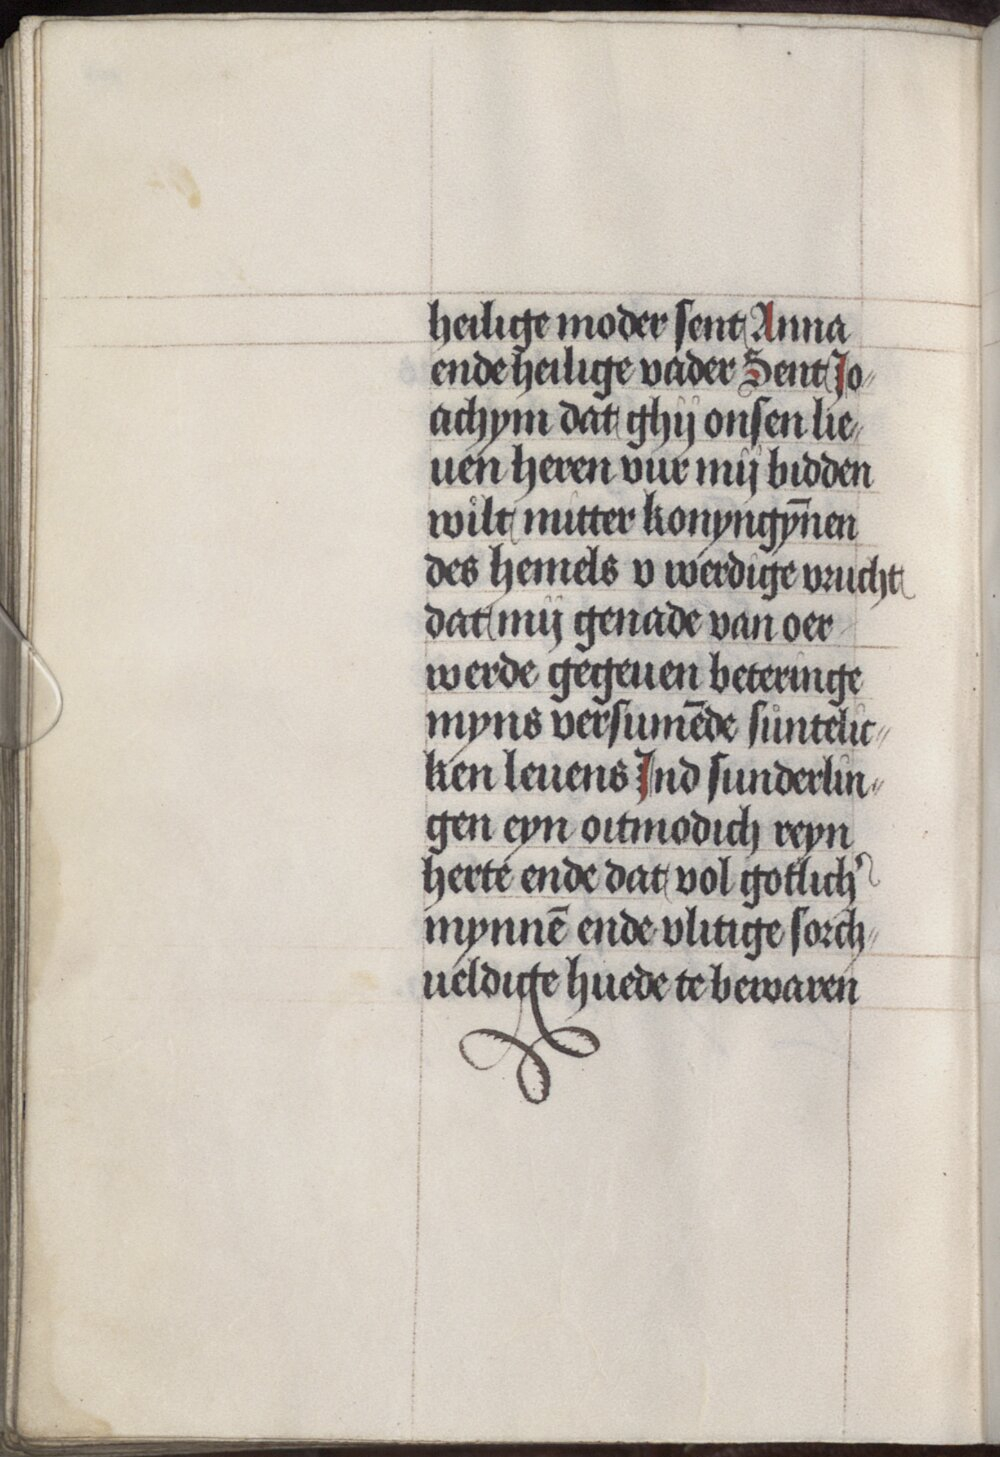 heilige moder sent Anna
ende heilige vader Sent Jo-
achym dat ghij onsen lie-
uen heren vur mij bidden
wilt mitter konyngyn̄en
des hemels v werdige vrucht
dat mij genade van oer
werde gegeuen beteringe
myns versumēde suntelic-
ken leuens Ind sunderlin-
gen eyn oitmodich reyn
herte ende dat vol gotlich'
mynnē ende vlitige sorch-
ueldige huede te bewaren